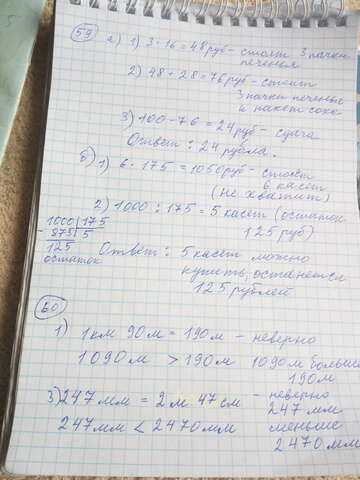 59
а) 1) 3·16=48 руб - стоят 3 пачки
печенья
2) 48+28=76 руб - стоит
3 пачки печенья
и пакет сока
3) 100-76=24 руб - сдача
Ответ: 24 рубля.
б) 1) 6·175=1050 руб - стоят
6 касет
(не хватит)
2) 1000:175=5 касет (остаток
125 руб)
1000 | 175
- 875 | 5
125
остаток
Ответ: 5 касет можно
купить, останется
125 рублей
60
1) 1 км 90 м = 190 м - неверно
1090 м > 190 м 1090 м больше
190 м
3) 247 мм = 2 м 47 см - неверно
247 мм
247 мм < 2470 мм меньше
2470 мм